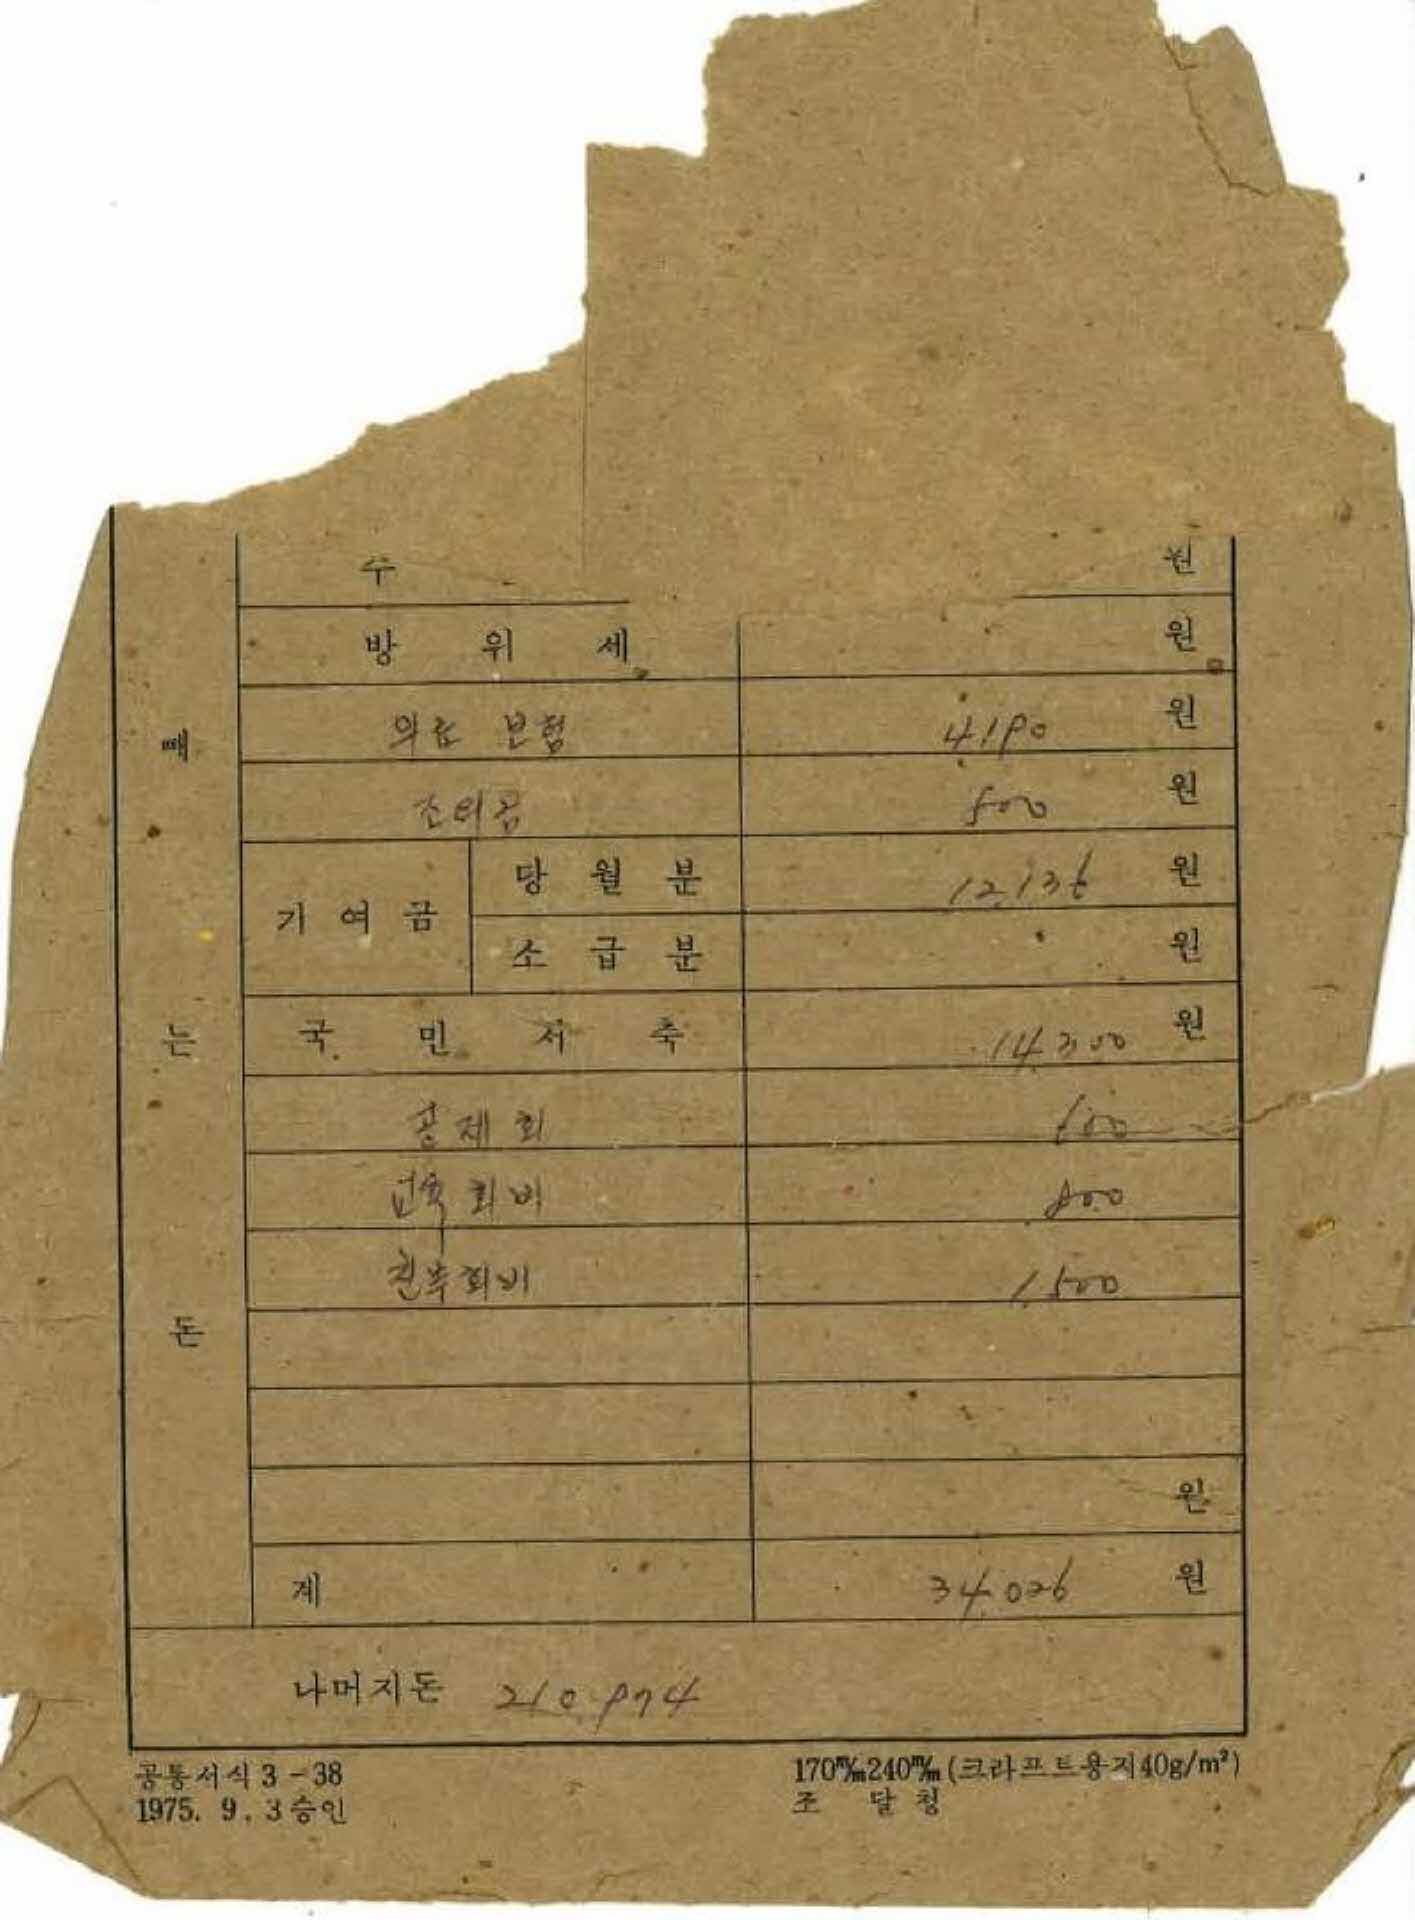 수 원
방 위 세 원
의료 보험 4,190 원
조의금 500 원
기 여 금 당 월 분 12,136 원
소 급 분 원
국 민 저 축 14,300 원
공제회 600
교육회비 800
1,500
원
계 34,026 원
빼 는 돈
나머지돈 210,974
공통서식 3-38
1975. 9. 3 승인
170㎜240㎜(크라프트용지40g/m²)
조 달 청